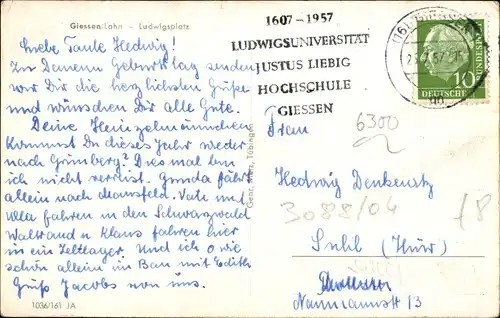 Giessen/Lahn - Ludwigsplatz
Liebe Tante Hedwig!
Zu Deinem Geburtstag senden
wir Dir die herzlichsten Grüße
und wünschen Dir alles Gute.
Deine Heinzelmännchen
Kommst Du dieses Jahr wieder
nach Grünberg? Diesmal bin
ich nicht verreist. Gerda fährt
allein nach Mansfeld. Vati und
Ulla fahren in den Schwarzwald
Waltraud u Klaus fahren hier
in ein Zeltlager. Und ich o wie
schön allein im Bau mit Edith
Grüß Jacobs von uns.
1036/161 JA
Gebr. Metz, Tübingen
1607-1957
LUDWIGSUNIVERSITÄT
JUSTUS LIEBIG
HOCHSCHULE
GIESSEN
(16)
10
DEUTSCHE
BUNDESPOST
Frau
6300
Hedwig Denkewitz
3088/04
18
Suhl (Thür)
Naumannstr 13